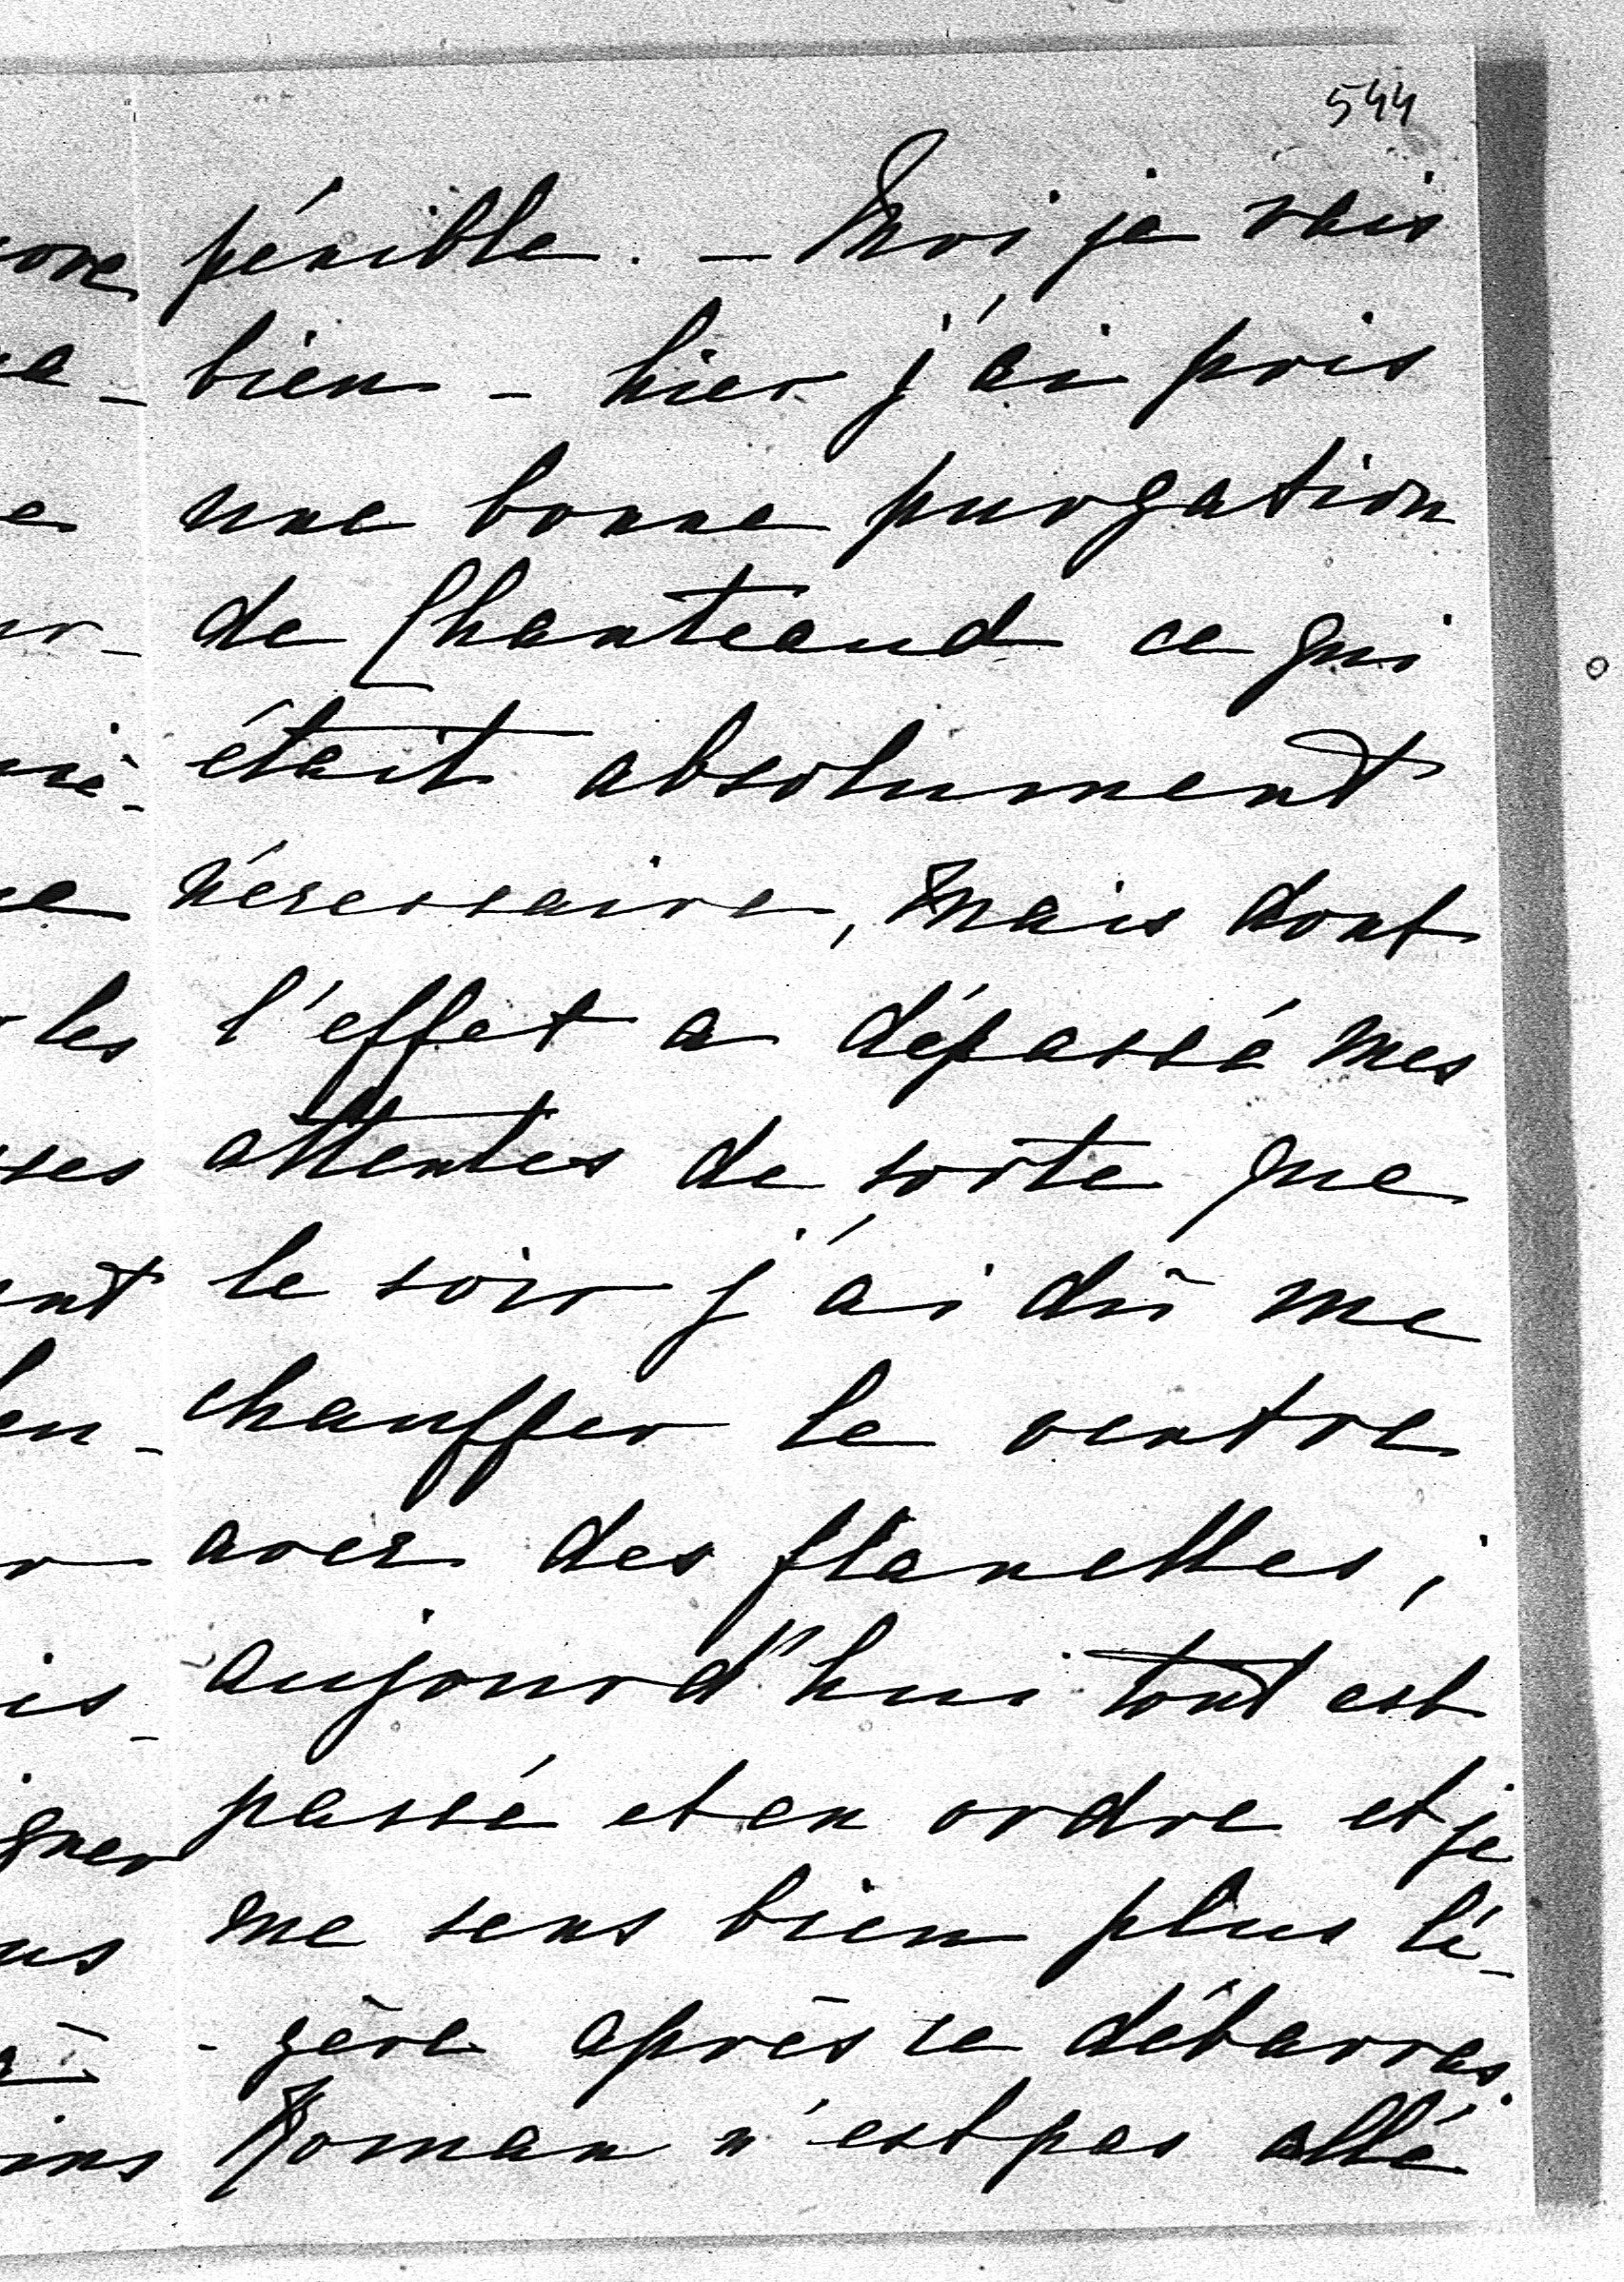 544
pénible. — Moi je vais
bien - hier j'ai pris
une bonne purgation
de Chanteaud ce qui
était absolument
nécessaire, mais dont
l'effet a dépassé mes
attentes de sorte que
le soir j'ai dû me
chauffer le ventre
avec des flanelles;
aujourd'hui tout est
passé et en ordre et je
me sens bien plus lé-
-gère après ce débarras.
Roman n'est pas allé